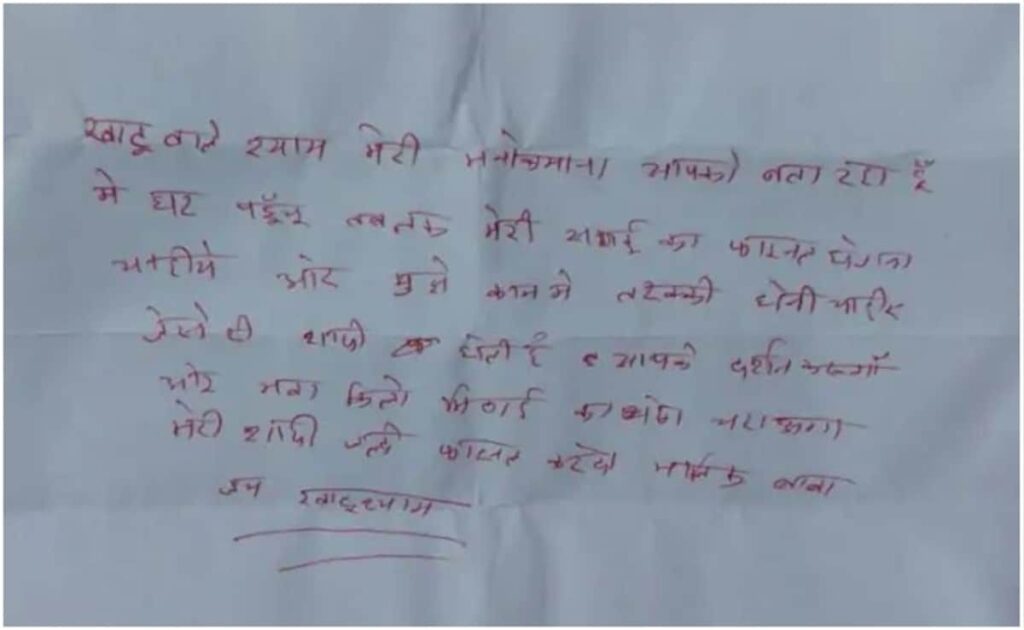 खाटू वाले श्याम मेरी मनोकामना आपको बता रहा हूँ
मे घर पहूँचू तब तक मेरी सगाई का फाइनल होना
चाहीये ओर मुझे काम मे तरक्की होनी चाहीए
जेसे ही शादी होती है आपके दर्शन करूगाँ
ओर सवा किलो मिठाई का भोग चराऊगा
मेरी शादी जल्दी फाइनल करदो मालिक बाबा
जय खाटूश्याम